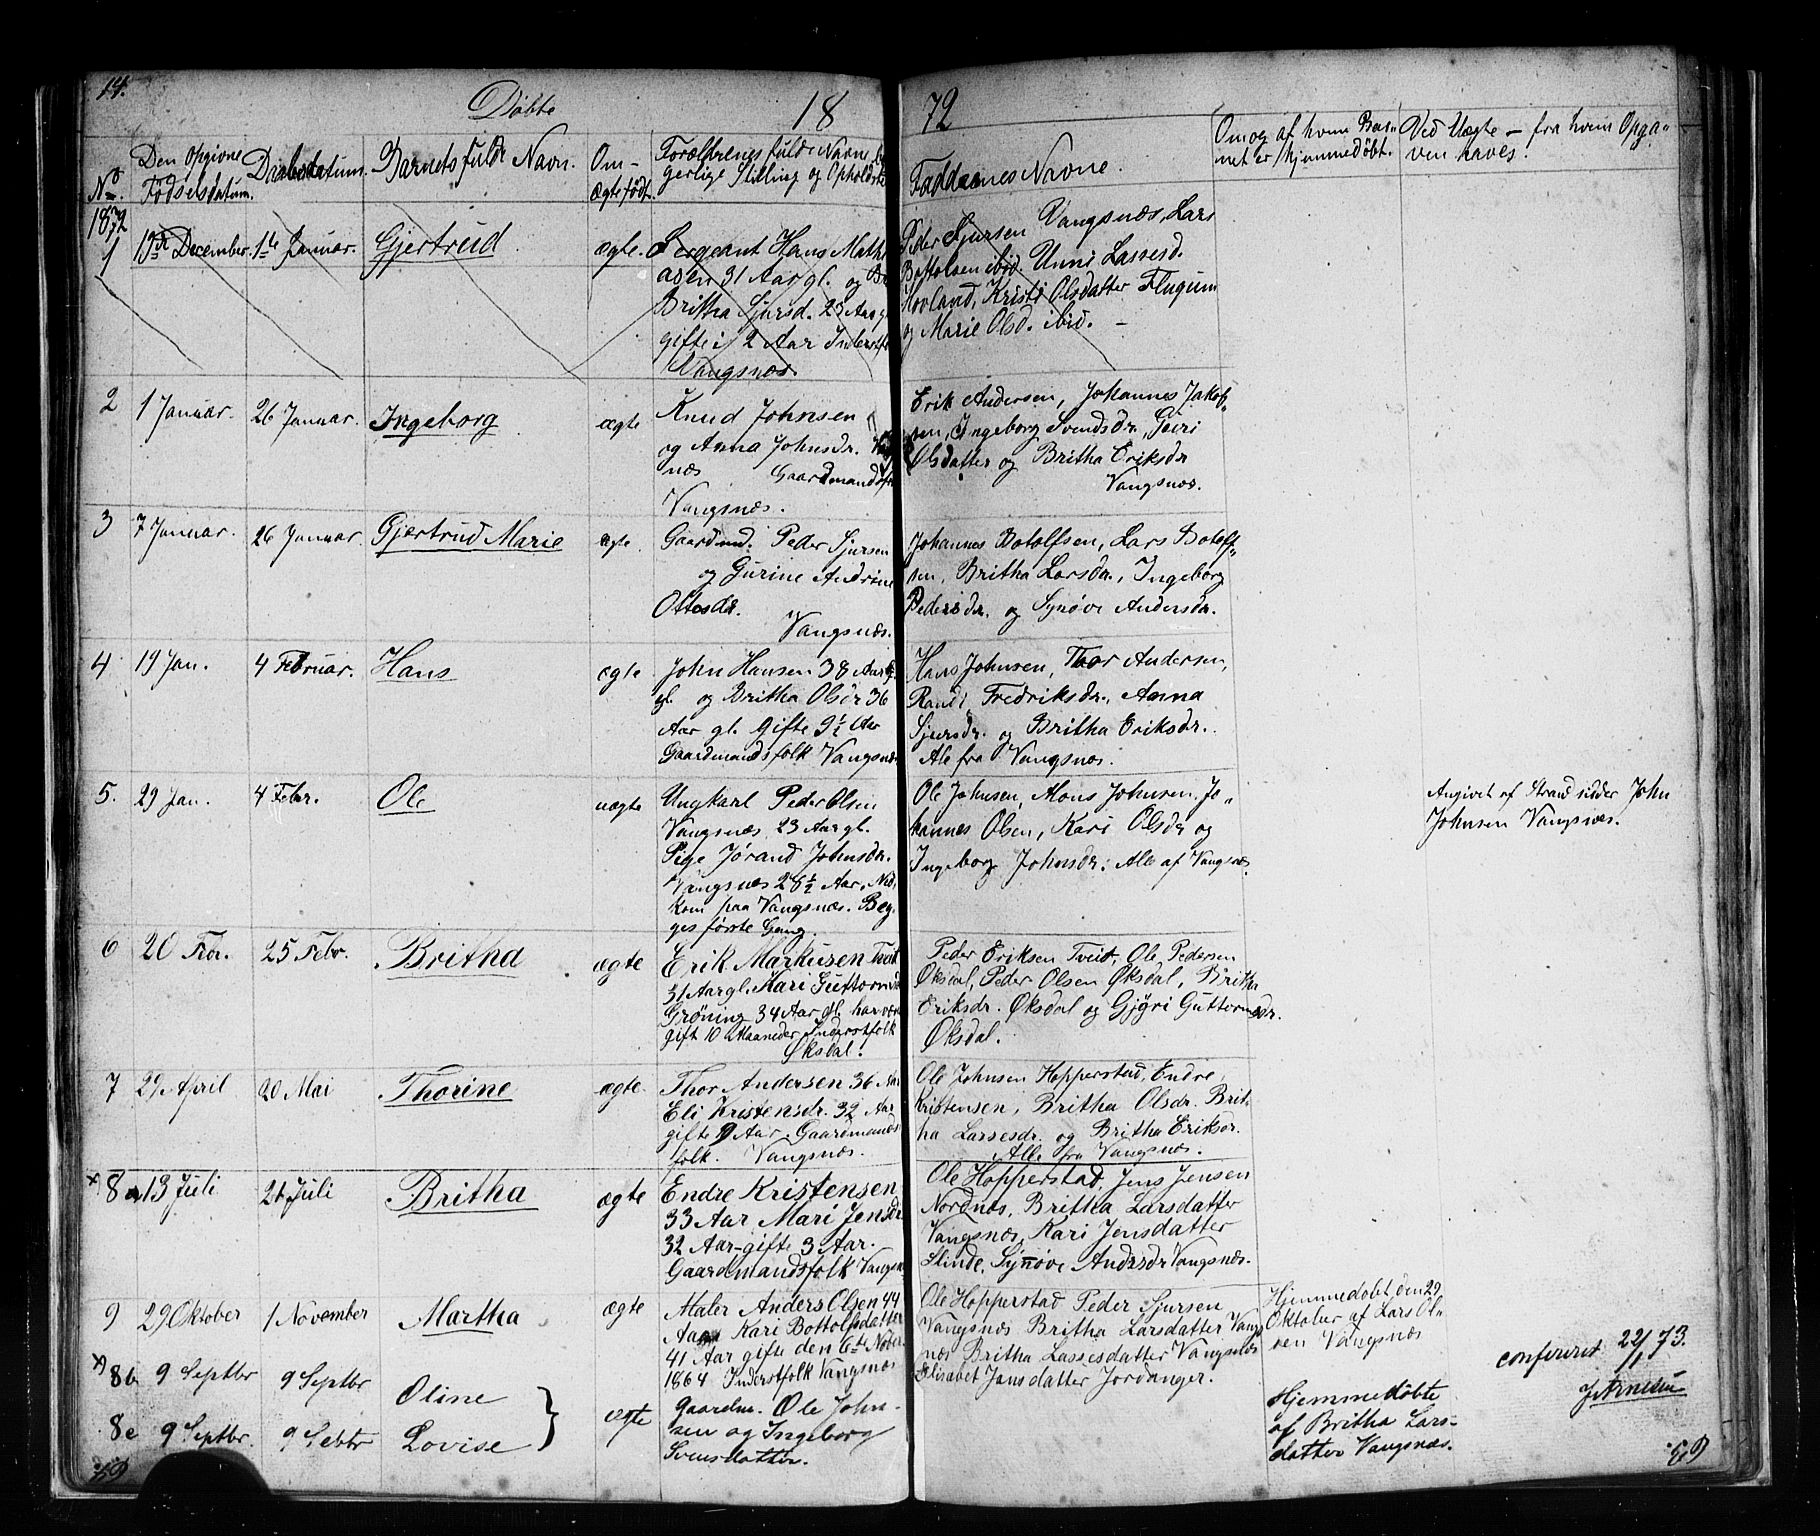 14.
Döbte 18 72
No
Den Opgivne Fødselsdatum.
Daabsdatum.
Barnets fulde Navn.
Om ægte født.
Forældrenes fulde Navne, borgerlige Stilling og Opholdst
Faddernes Navne.
Om og af hvem Barnet er hjemmedøbt.
Ved Uægte – fra hvem Opgaven haves.
1872
1 13de December. 1ste Januar. Gjertrud ægte.
Sergeant Hans Math
asen 31 Aar gl. og
Britha Sjursd. 23 Aar gl
gifte i 2 Aar Inderstf
Vangsnæs
Peder Sjursen Vangsnæs, Lars
Bottolsen ibid. Unni Lassesd.
Hovland, Kristi Olsdatter Flugum
og Marie Olsd. ibid. –
2 1 Januar. 26 Januar. Ingeborg ægte
Knud Johnsen
og Anna Johnsdr. Vangs
næs Gaardmandsf
Vangsnæs.
Erik Andersen, Johannes Jakob„
sen, Ingeborg Svendsdr, Guri
Olsdatter og Britha Eriksdr
Vangsnæs.
3 7 Januar. 26 Januar. Gjertrud Marie ægte.
Gaardmd. Peder Sjursen
og Gurine Andrine
Ottosdr.
Vangsnæs.
Johannes Botolfsen, Lars Botolf„
sen, Britha Larsdr., Ingeborg
Pedersdr. og Synøve Andersdr.
4 19 Jan. 4 Februar. Hans ægte
John Hansen 38 Aar
gl. og Britha Olsdr 36
Aar gl. Gifte 9½ Aar
Gaardmandsfolk Vangsnæs
Hans Johnsen, Thor Andersen,
Randi Fredriksdr., Anna
Sjursdr. og Britha Eriksdr.
Ale fra Vangsnæs.
5. 29 Jan. 4 Febr. Ole uægte
Ungkarl Peder Olsen
Vangsnæs 23 Aar gl.
Pige Jørand Johnsdr.
Vangsnæs 28½ Aar, Ned„
kom paa Vangsnæs. Beg„
ges første Gang.
Ole Johnsen, Mons Johnsen, Jo„
hannes Olsen, Kari Olsdr og
Ingeborg Johnsdr: Ale af Vangsnæs.
Angivet af Strandsidder John
Johnsen Vangsnæs.
6 20 Febr. 25 Febr. Britha ægte
Erik Markusen Tveit
31 Aar gl. Mari Guttormsd
Grøning 34 Aar gl. har været
gift 10 Maaneder Inderstfolk
Øksdal.
Peder Eriksen Tveit, Ole Pedersen
Øksdal, Peder Olsen Øksdal, Britha
Eriksdr. Øksdal og Gjøri Guttormsdr.
Øksdal.
7 29 April 20 Mai Thorine ægte.
Thor Andersen 36 Aar
Eli Kristensdr. 32 Aar
gifte 9 Aar. Gaardmands
folk. Vangsnæs.
Ole Johnsen Hopperstad, Endre
Kristensen, Britha Olsdr. Brit„
ha Lassesdr. og Britha Eriksdr.
Alle fra Vangsnæs.
×) 8 a 13 Juli 21 Juli Britha ægte
Endre Kristensen
33 Aar Mari Jensdr
32 Aar – gifte 3 Aar.
Gaardmandsfolk Vangsn
Ole Hopperstad, Jens Jensen
Nordnæs, Britha Larsdatter
Vangsnæs, Kari Jensdatter
Slinde, Synøve Andersdr Vangsnæs.
9 29 Oktober 1 November Martha ægte
Maler Anders Olsen 44
Aar Kari Bottolfsdatter
41 Aar gifte den 6te Novbr.
1864 Inderstfolk Vangsnæs
Ole Hopperstad Peder Sjursen
Vangsnæs Britha Larsdatter Vangs
næs Britha Lassesdatter Vangsnæs
Elisabet Jansdatter Jordanger.
Hjemmedöbt den 29
Oktober af Lars Ol„
sen Vangsnæs
confereret 22/1 73.
J Arnesen
×) 8b 9 Septbr 9 Septbr Oline
8c 9 Septbr. 9 Sebtr Lovise
ægte
Gaardm. Ole John-
sen og Ingeborg
Svensdatter.
Hjemmedøbte
af Britha Lars-
datter Vangsnæs.
59
59